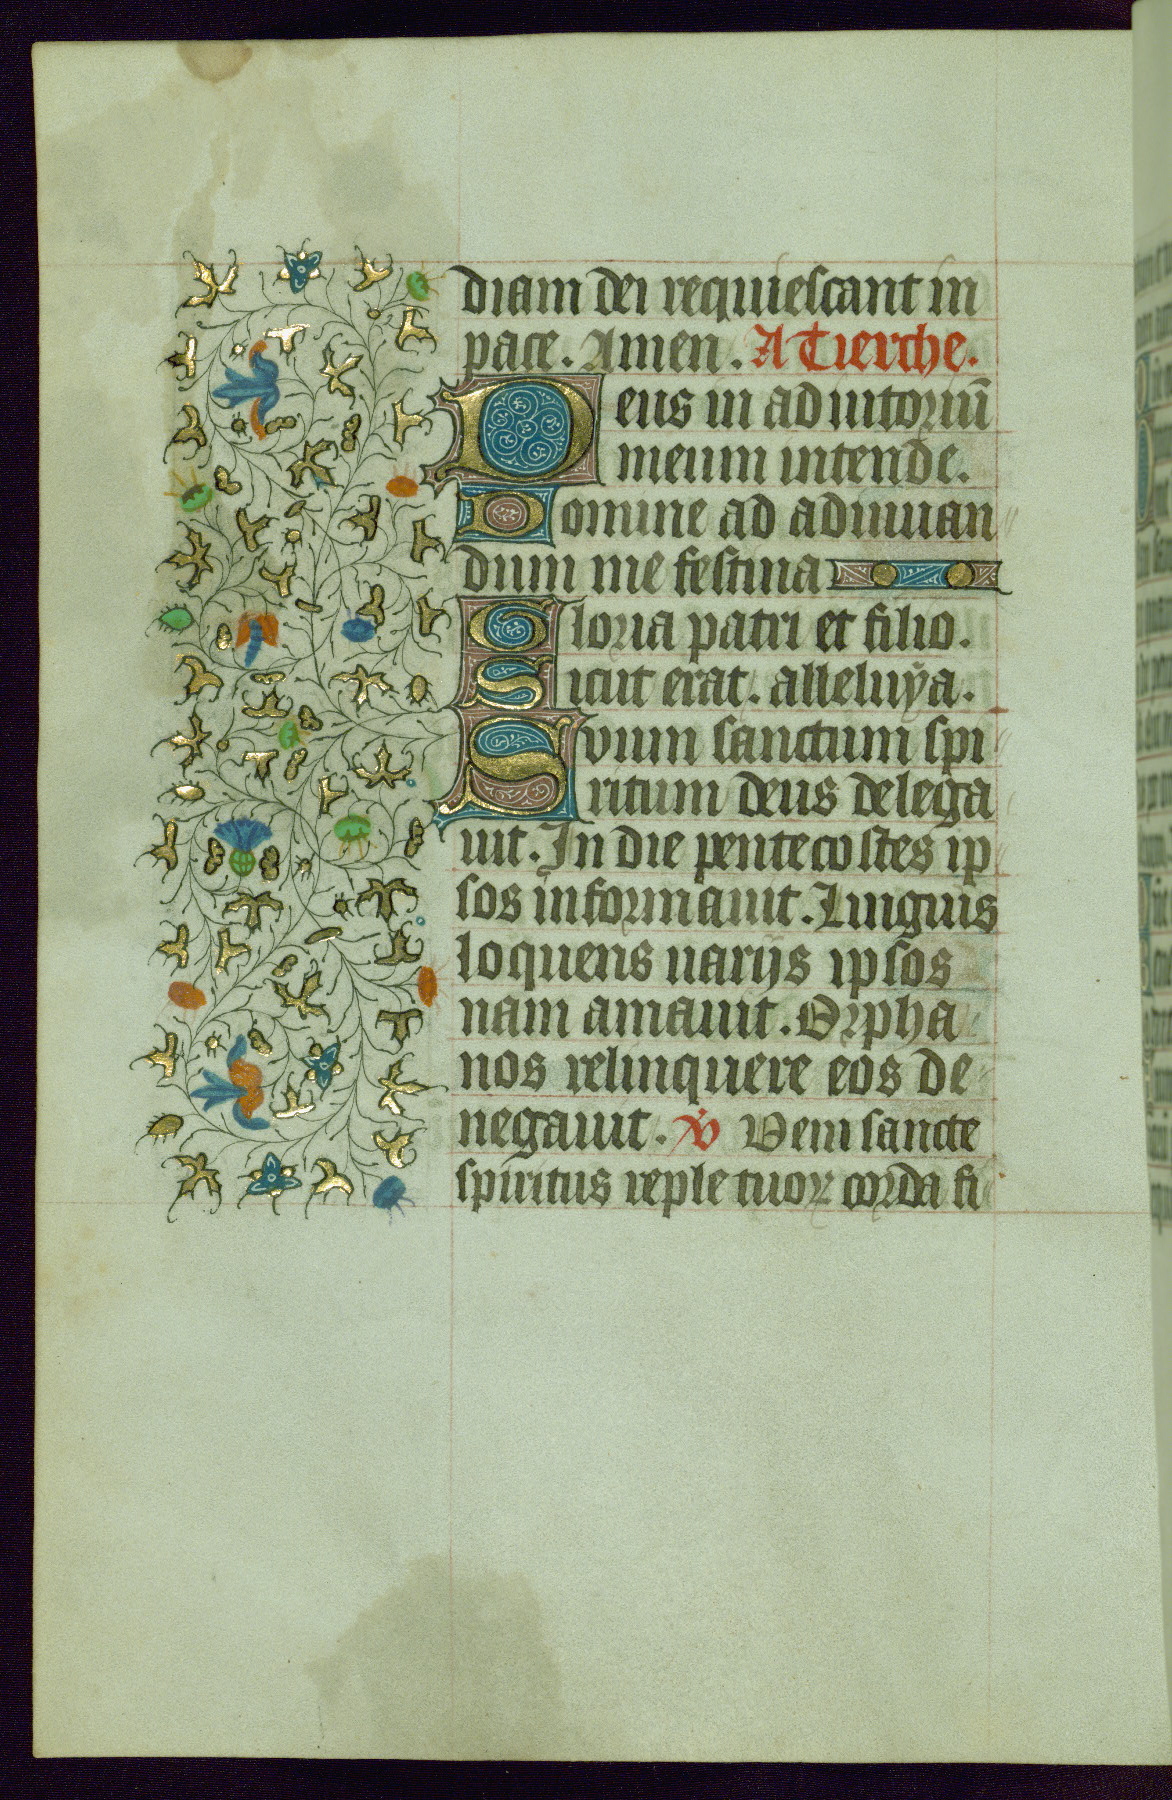 diam dei requiescant in
pace. Amen. A Tierche.
Deus in adiutoriū
meum intende.
Domine ad adiuuan
dum me festina
Gloria patri et filio.
Sicut erat. alleluya.
Suum sanctum spi
ritum deus delega
uit. In die pentecostes ip
sos informauit. Linguis
loquens uarijs ipsos
nam amauit. Orpha
nos relinquere eos de
negauit. ℣ Veni sancte
spiritus reple tuoꝝ corda fi